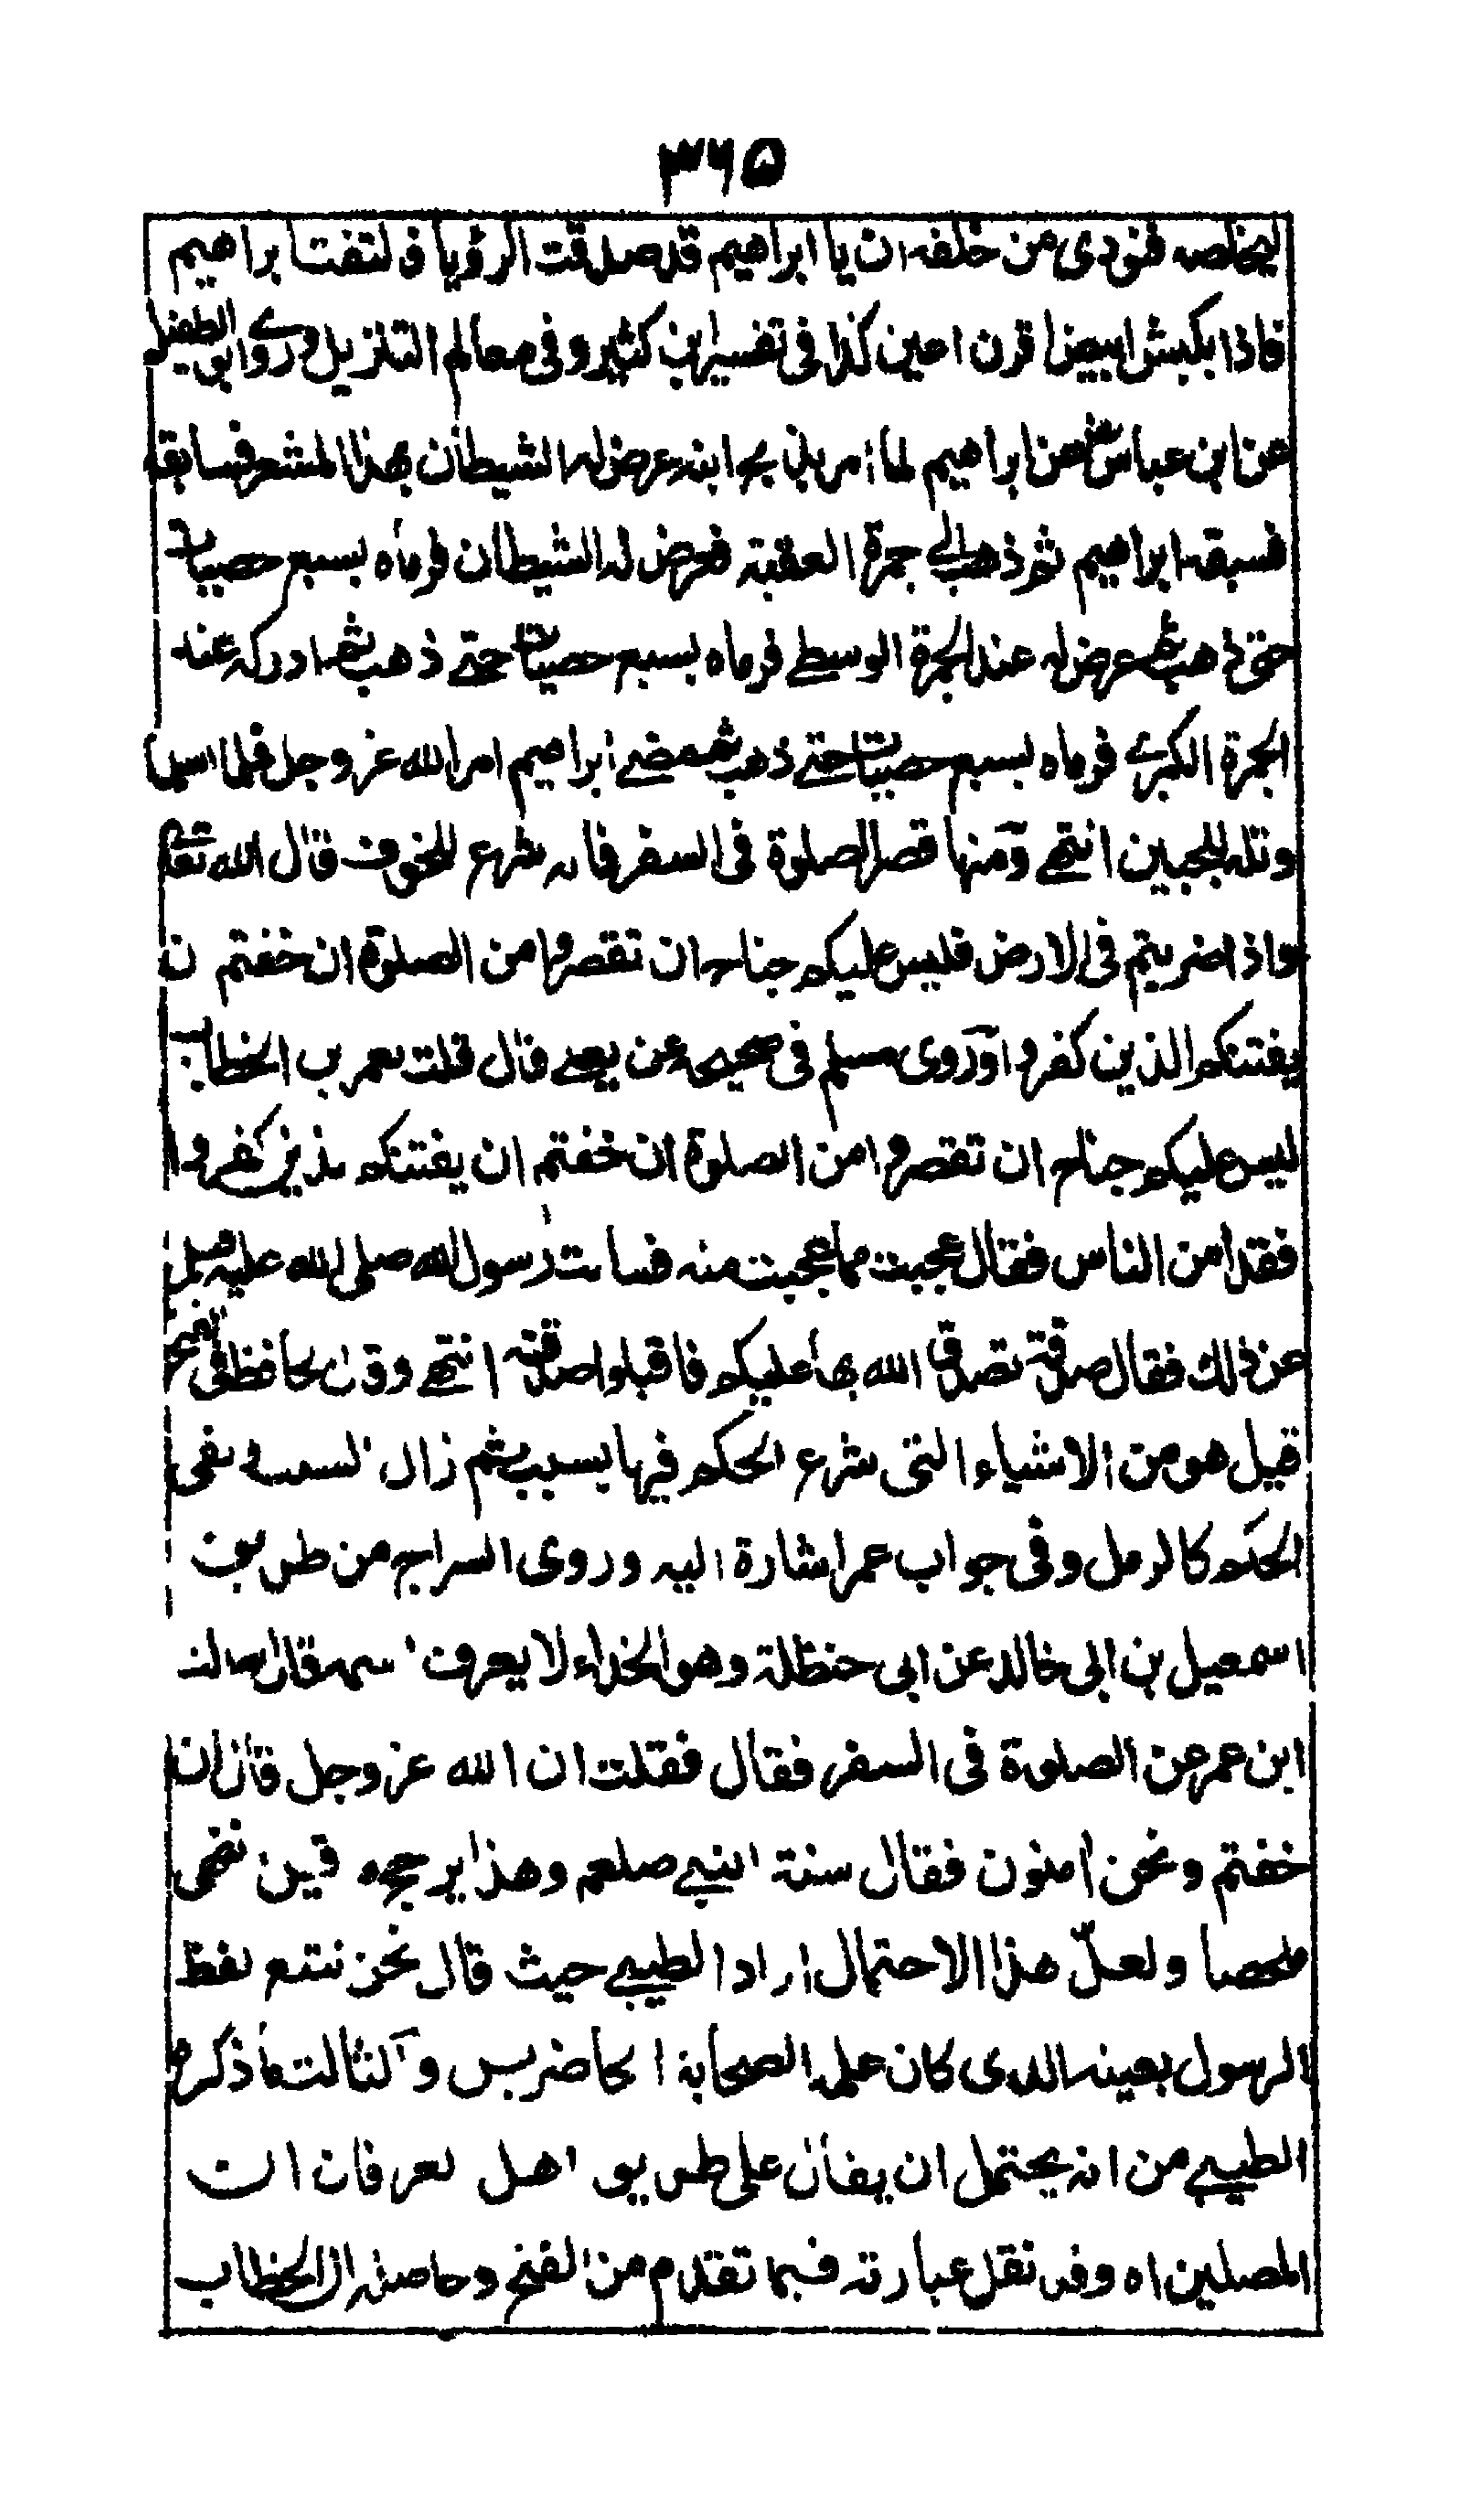 ٣٦٥
ليخلصه فنودى من خلفه ان يا ابراهيم قد صدقت الرؤيا فالتفت ابراهيم
فاذا بكبش ابيض اقرن اعين كذا فى تفسير ابن كثير وفى معالم التنزيل وروى ابو الطفيل
عن ابن عباس رض ان ابراهيم لما امر بذبح ابنه عرض له الشيطان بهذا المشعر فسابقه
فسبقه ابراهيم ثم ذهب الى جمرة العقبة فعرض له الشيطان فرماه بسبع حصيات
حتى ذهب ثم عرض له عند الجمرة الوسطى فرماه بسبع حصيات حتى ذهب ثم ادركه عند
الجمرة الكبرى فرماه بسبع حصيات حتى ذهب ثم مضى ابراهيم امر الله عز وجل فلما اسلما
وتله للجبين انتهى ومنها قصر الصلوة فى السفر فانه شرع للخوف قال الله تعالى
واذا ضربتم فى الارض فليس عليكم جناح ان تقصروا من الصلوة ان خفتم ان
يفتنكم الذين كفروا وروى مسلم فى صحيحه عن يعلى قال قلت لعمر بن الخطاب
ليس عليكم جناح ان تقصروا من الصلوة ان خفتم ان يفتنكم الذين كفروا
فقد امن الناس فقال عجبت مما عجبت منه فسالت رسول الله صلى الله عليه وسلم
عن ذلك فقال صدقة تصدق الله بها عليكم فاقبلوا صدقته انتهى وقال الحافظ فى الفتح
قيل هو من الاشياء التى شرع الحكم فيها بسبب ثم زال السبب وبقى
الحكم كالرمل وفى جواب عمر اشارة اليه وروى السراج من طريق
اسمعيل بن ابى خالد عن ابى حنظلة وهو الحذاء لا يعرف اسمه قال سالت
ابن عمر عن الصلوة فى السفر فقال فقلت ان الله عز وجل قال ان
خفتم ونحن امنون فقال سنة النبى صلعم وهذا يرجح القيل انتهى
ملخصا ولعل هذا الاحتمال اراد الطيبى حيث قال نحن نتبع لفظ
الرسول بعينه الذى كان علمه الصحابة الحاضرين والثالث ما ذكره
الطيبى من انه يحتمل ان يقال على طريق اهل العرفان ان
المصلين اه وقد نقل عبارته فيما تقدم من الفتح وحاصله ان الخطاب